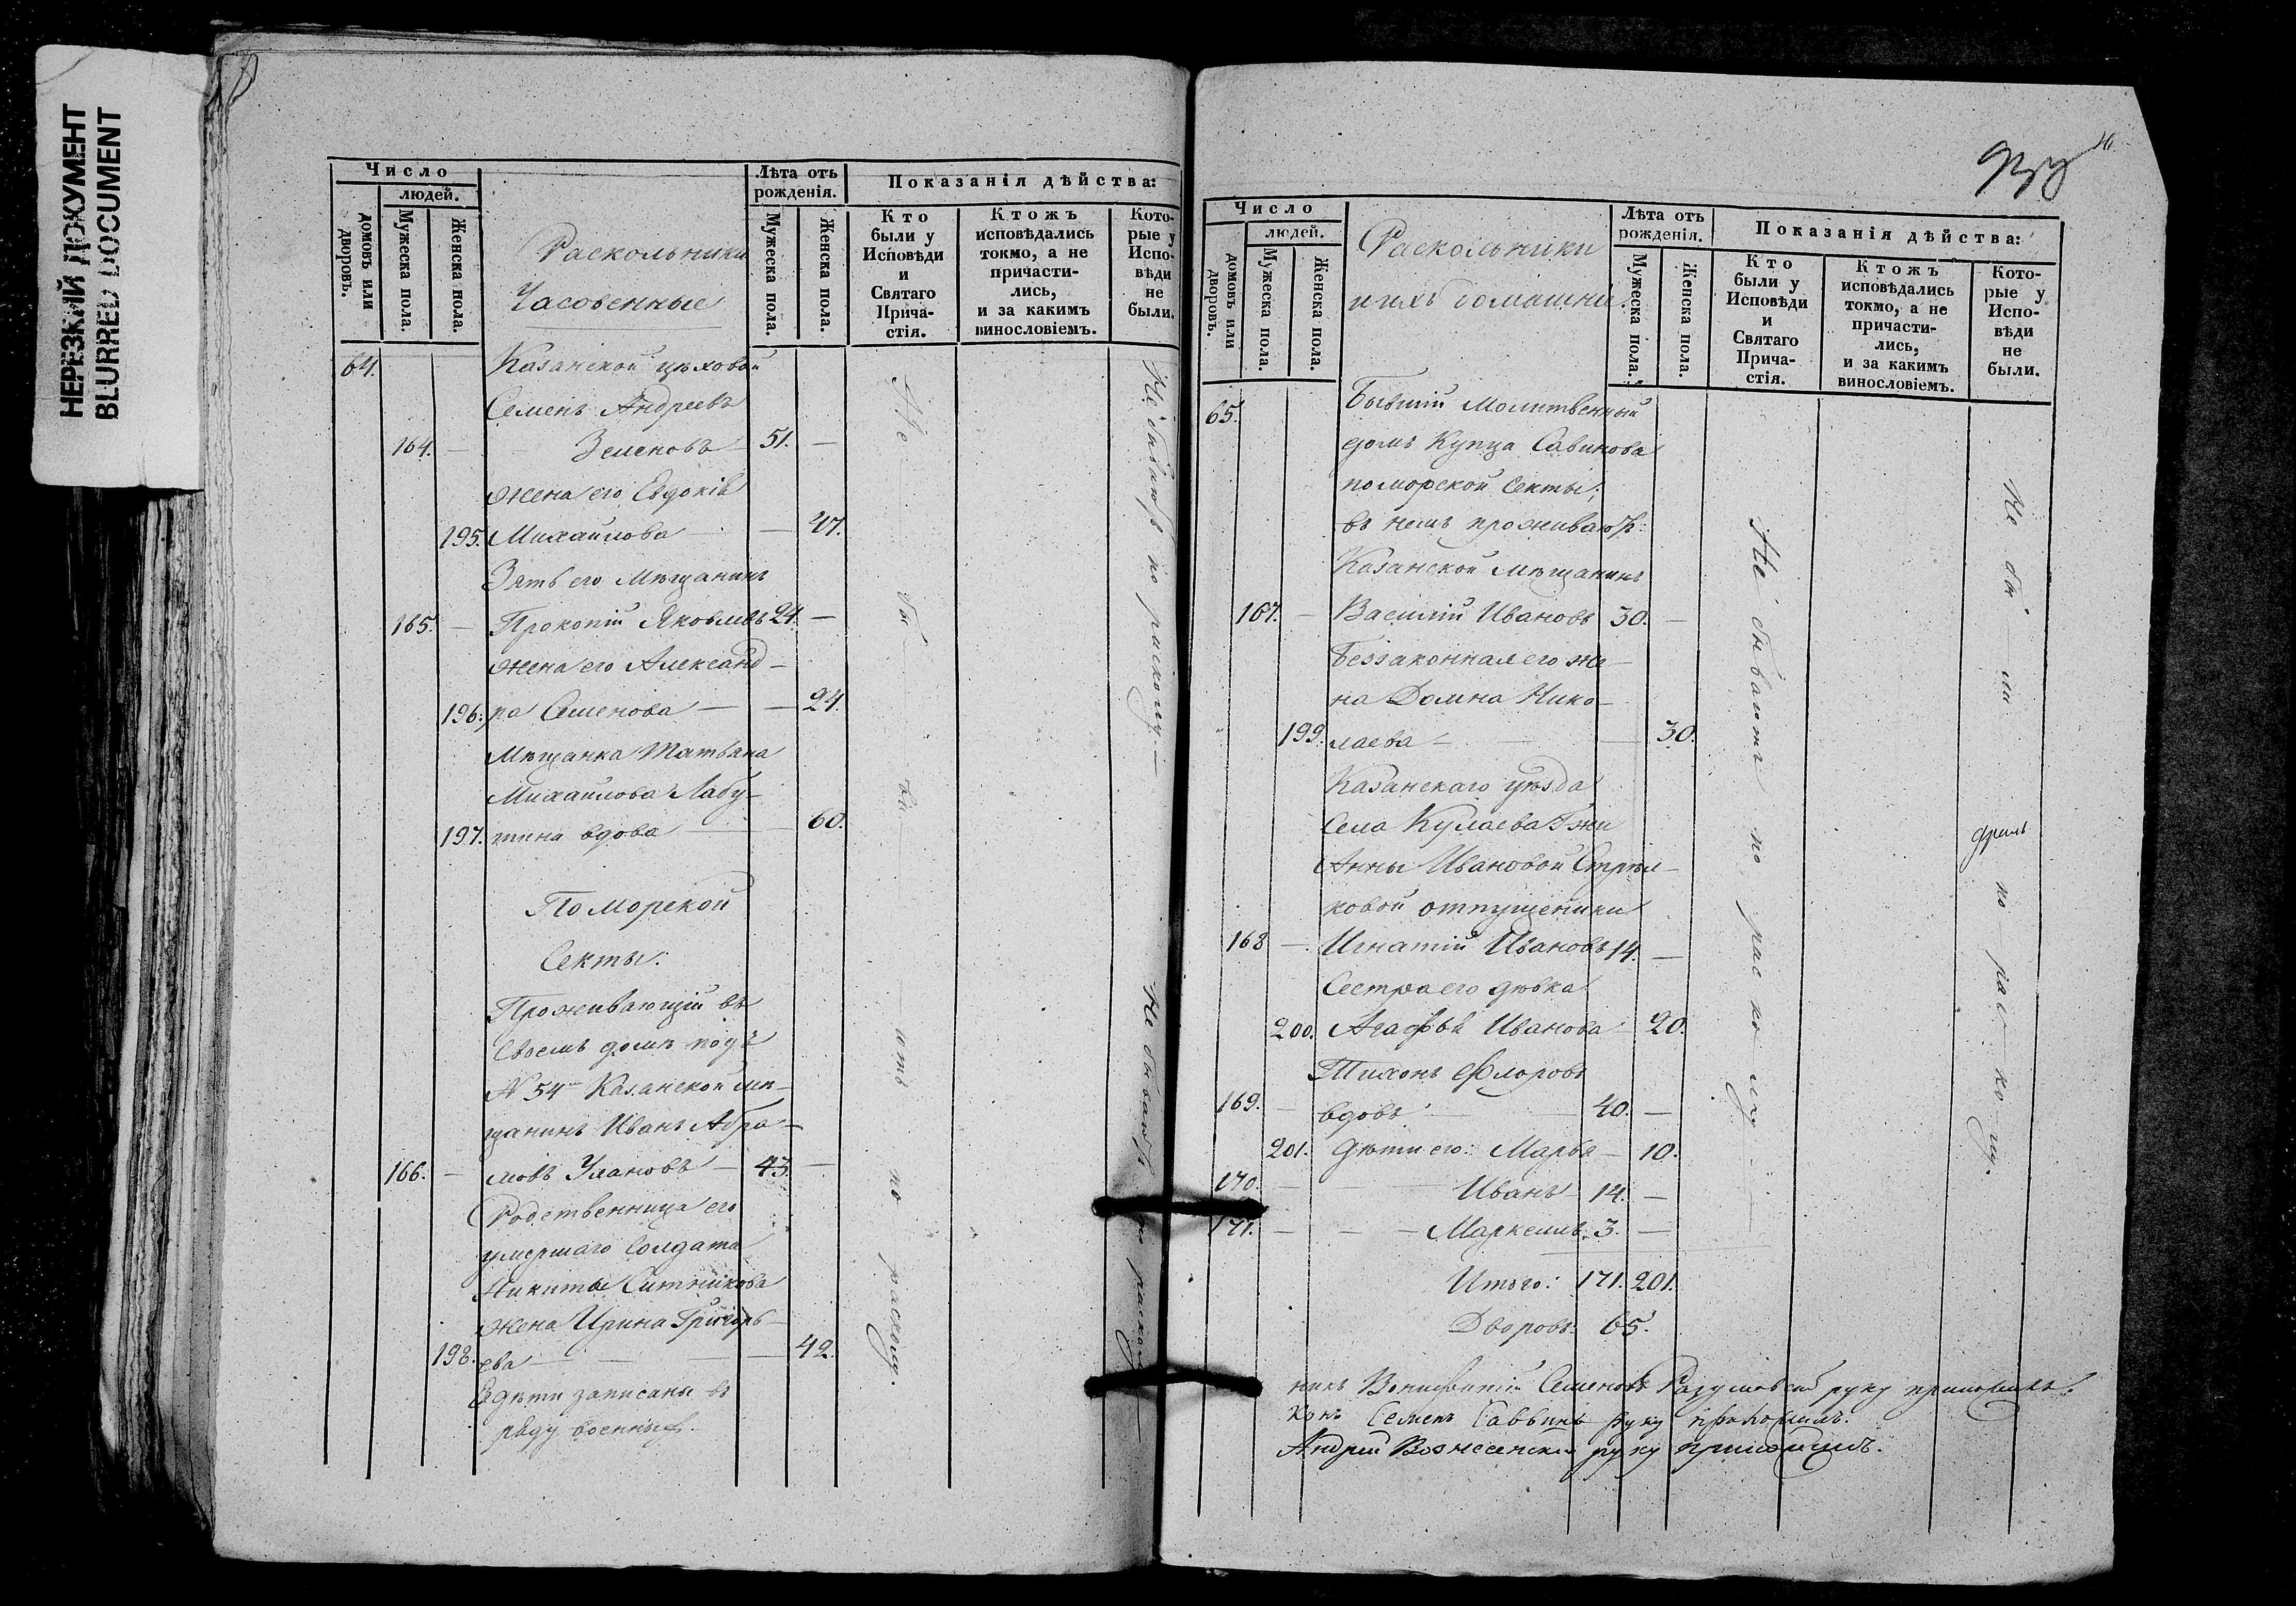 НЕРЕЗКИЙ ДОКУМЕНТ
BLURRED DOCUMENT
Число
людей.
домовъ или дворовъ.
Мужеска пола.
Женска пола.
Раскольники
Часовенные
Лѣта отъ рожденія.
Мужеска пола.
Женска пола.
Показанія дѣйства:
Кто были у Исповѣди и Святаго Прича-стія.
Ктожъ исповѣдались токмо, а не причасти-лись, и за какимъ винословіемъ.
Кото-рые у Испо-вѣди не были.
64. Казанской цѣховой
Семенъ Андреевъ
164. — Зеленовъ — 51. —
жена его Евдокія
195. Михайлова — — 47.
Зять его Мѣщанинъ
165. — Прокопій Яковлевъ 24. —
жена его Александ-
196. ра Семенова — — 24.
Мѣщанка Татьяна
Михайлова Лабу-
197. тина вдова — 60.
Поморской
Секты:
Проживающій въ
своемъ домѣ подъ
№ 54 Казанской мѣ-
щанинъ Иванъ Абра-
166. — мовъ Улановъ — 43. —
Родственница его
умершаго Солдата
Никиты Ситникова
жена Ирина Григорь-
198. ева — — — — 42.
дѣти записаны въ
ряду военныхъ.
по расколу.
Не бываютъ по расколу. —
Не бываютъ по расколу
Число
людей.
домовъ или дворовъ.
Мужеска пола.
Женска пола.
Раскольники
и ихъ домашніе.
Лѣта отъ рожденія.
Мужеска пола.
Женска пола.
Показанія дѣйства:
Кто были у Исповѣди и Святаго Прича-стія.
Ктожъ исповѣдались токмо, а не причасти-лись, и за какимъ винословіемъ.
Кото-рые у Испо-вѣди не были.
65. Бывшій Молитвенный
домъ Купца Савинова
поморской Секты;
въ немъ проживаютъ:
Казанской мѣщанинъ
167. — Василій Ивановъ 30. —
Беззаконная его же-
на Домна Нико-
199. лаева — — — 30.
Казанскаго уѣзда
Села Кулаева Гжи
Анны Ивановой Стрѣл-
ковой отпущеники
168 — Игнатій Ивановъ 14. —
Сестра его дѣвка
200. Агафья Иванова 20.
Тихонъ Флоровъ
169. — вдовъ — 40. —
201. Дѣти его: Марья — 10.
170. — — — Иванъ — 14. —
171. — — — Маркеллъ. 3. —
Итого: 171. 201.
Дворовъ: 65.
Не бываютъ по расколу
по рас-ко-лу.
никъ Вонифатій Семеновъ Разумовскій руку приложилъ.
конъ Семенъ Саввинъ руку приложилъ.
Андрей Вознесенскій руку приложилъ.